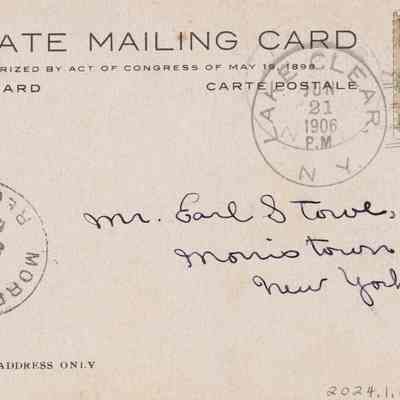 ATE MAILING CARD
RIZED BY ACT OF CONGRESS OF MAY 19, 1898
ARD CARTE POSTALE
LAKE CLEAR, N.Y.
JUN
21
1906
P.M
Mr. Earl Stowe,
Morristown
New York
MORR
ADDRESS ONLY
2024.1.